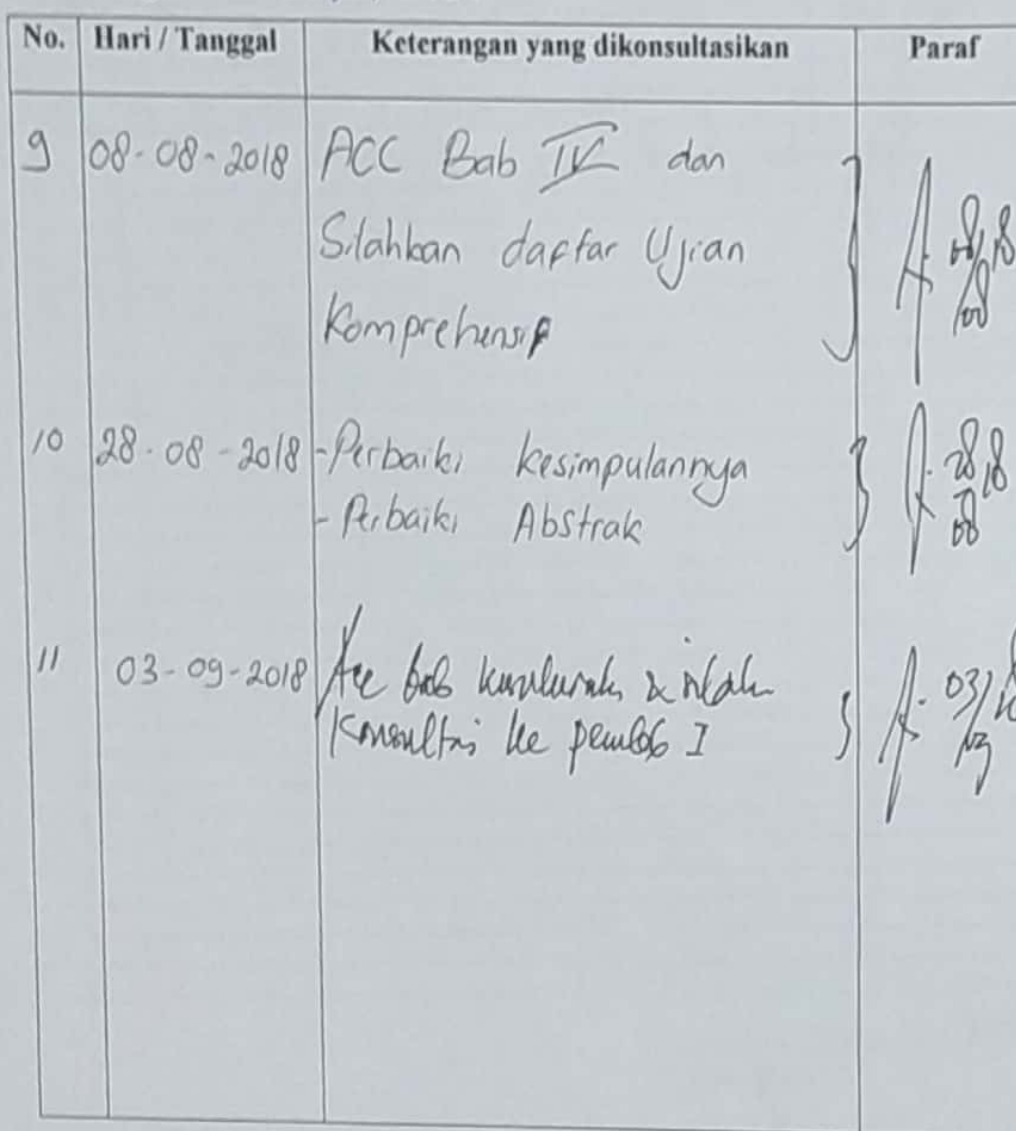 No. Hari / Tanggal Keterangan yang dikonsultasikan Paraf
9 08-08-2018 ACC Bab IV dan
Silahkan daftar Ujian
Komprehensif
08/18
08
10 28-08-2018 - Perbaiki kesimpulannya
- Perbaiki Abstrak
28/18
08
11 03-09-2018 Acc bab &
konsultasi ke pembb I
03/